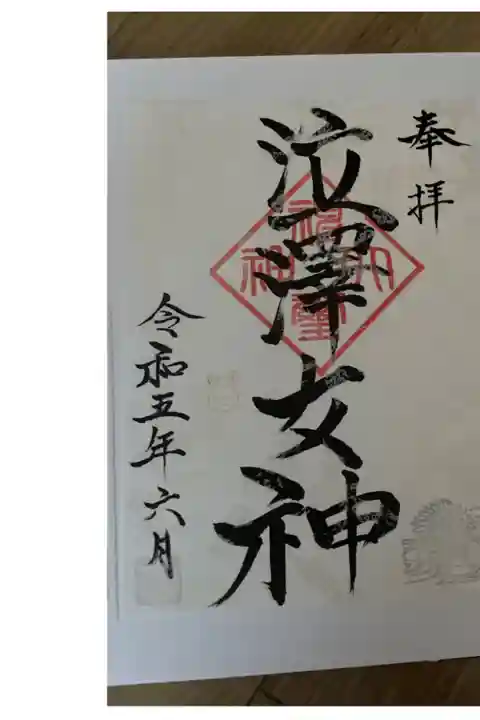 奉拝
泣澤女神
令和五年六月